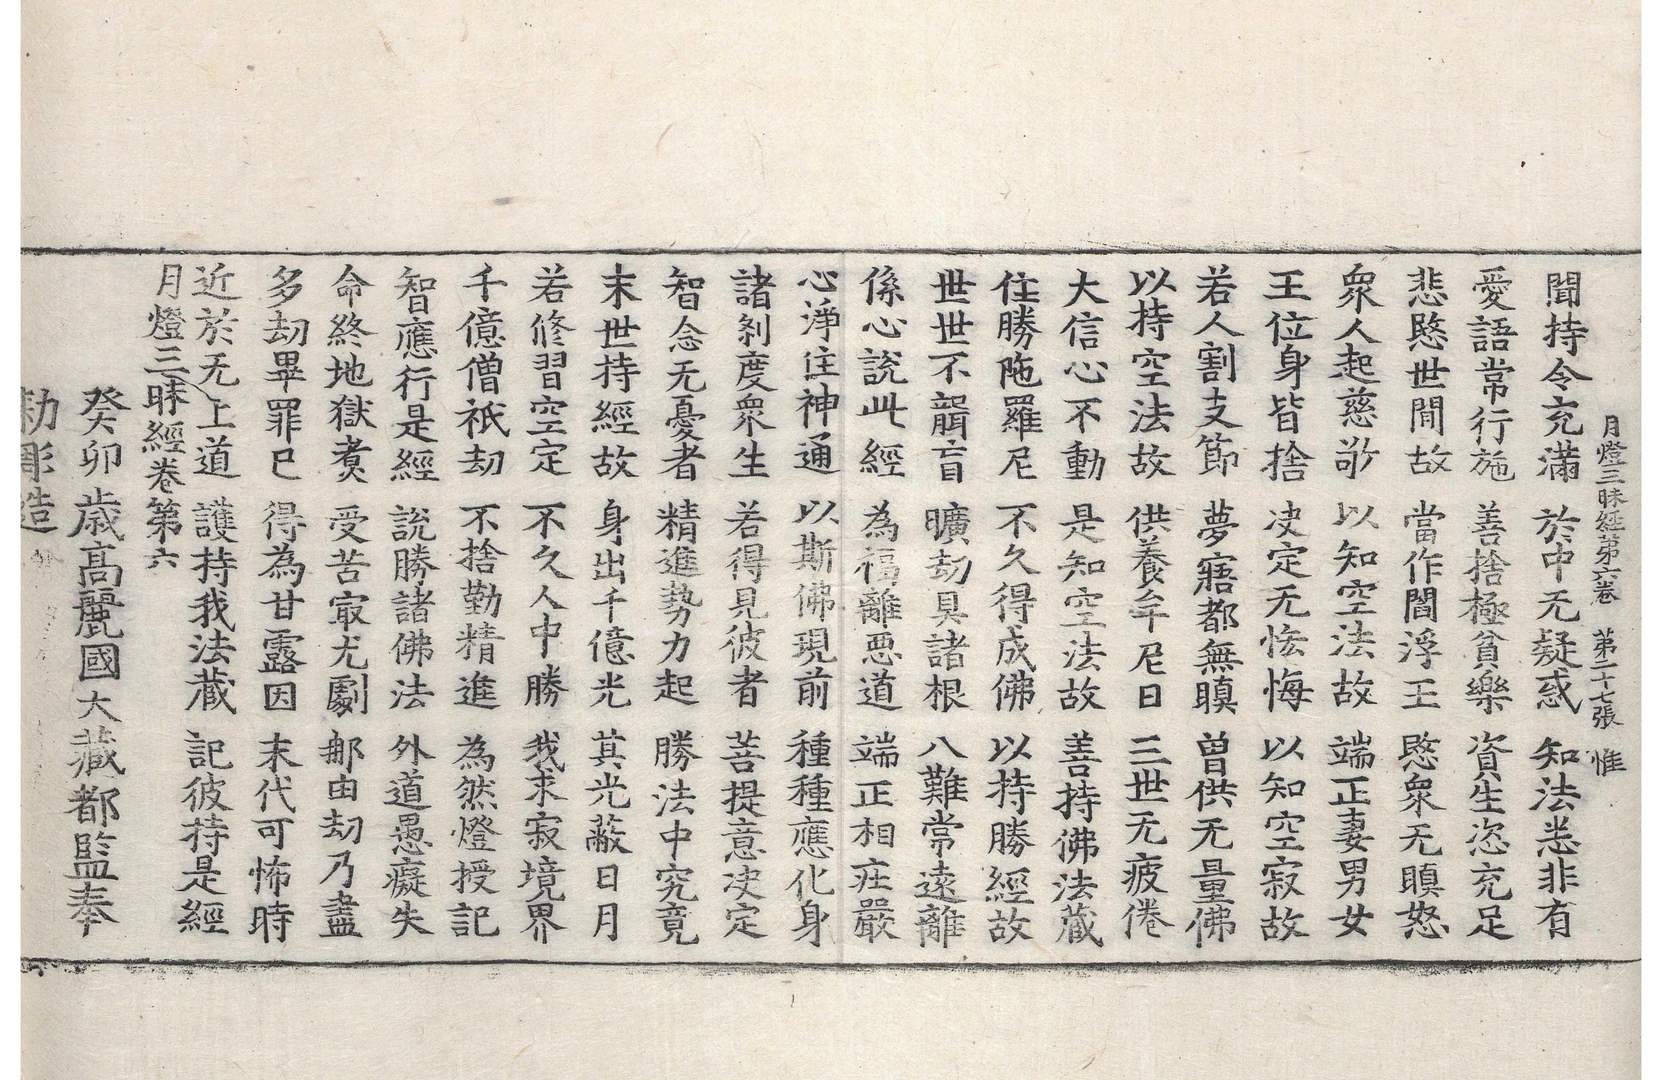 月燈三昧經第六卷　第二十七張　惟
聞持令充滿　於中无疑惑　知法悉非有
愛語常行施　善捨極貧樂　資生恣充足
悲愍世間故　當作閻浮王　愍衆无瞋怒
衆人起慈敬　以知空法故　端正妻男女
王位身皆捨　决定无恡悔　以知空寂故
若人割支節　夢寤都無瞋　曾供无量佛
以持空法故　供養牟尼日　三世无疲倦
大信心不動　是知空法故　善持佛法藏
住勝陁羅尼　不久得成佛　以持勝經故
世世不聾盲　曠劫具諸根　八難常遠離
係心說此經　為福離惡道　端正相莊嚴
心淨住神通　以斯佛現前　種種應化身
諸刹度衆生　若得見彼者　菩提意决定
智念无憂者　精進勢力起　勝法中究竟
末世持經故　身出千億光　其光蔽日月
若修習空定　不久人中勝　我求寂境界
千億僧祇劫　不捨勤精進　為然燈授記
智應行是經　說勝諸佛法　外道愚癡失
命終地獄煑　受苦㝡尤劇　那由劫乃盡
多劫畢罪已　得為甘露因　末代可怖時
近於无上道　護持我法藏　記彼持是經
月燈三昧經卷第六
癸卯歲高麗國大藏都監奉
勅彫造